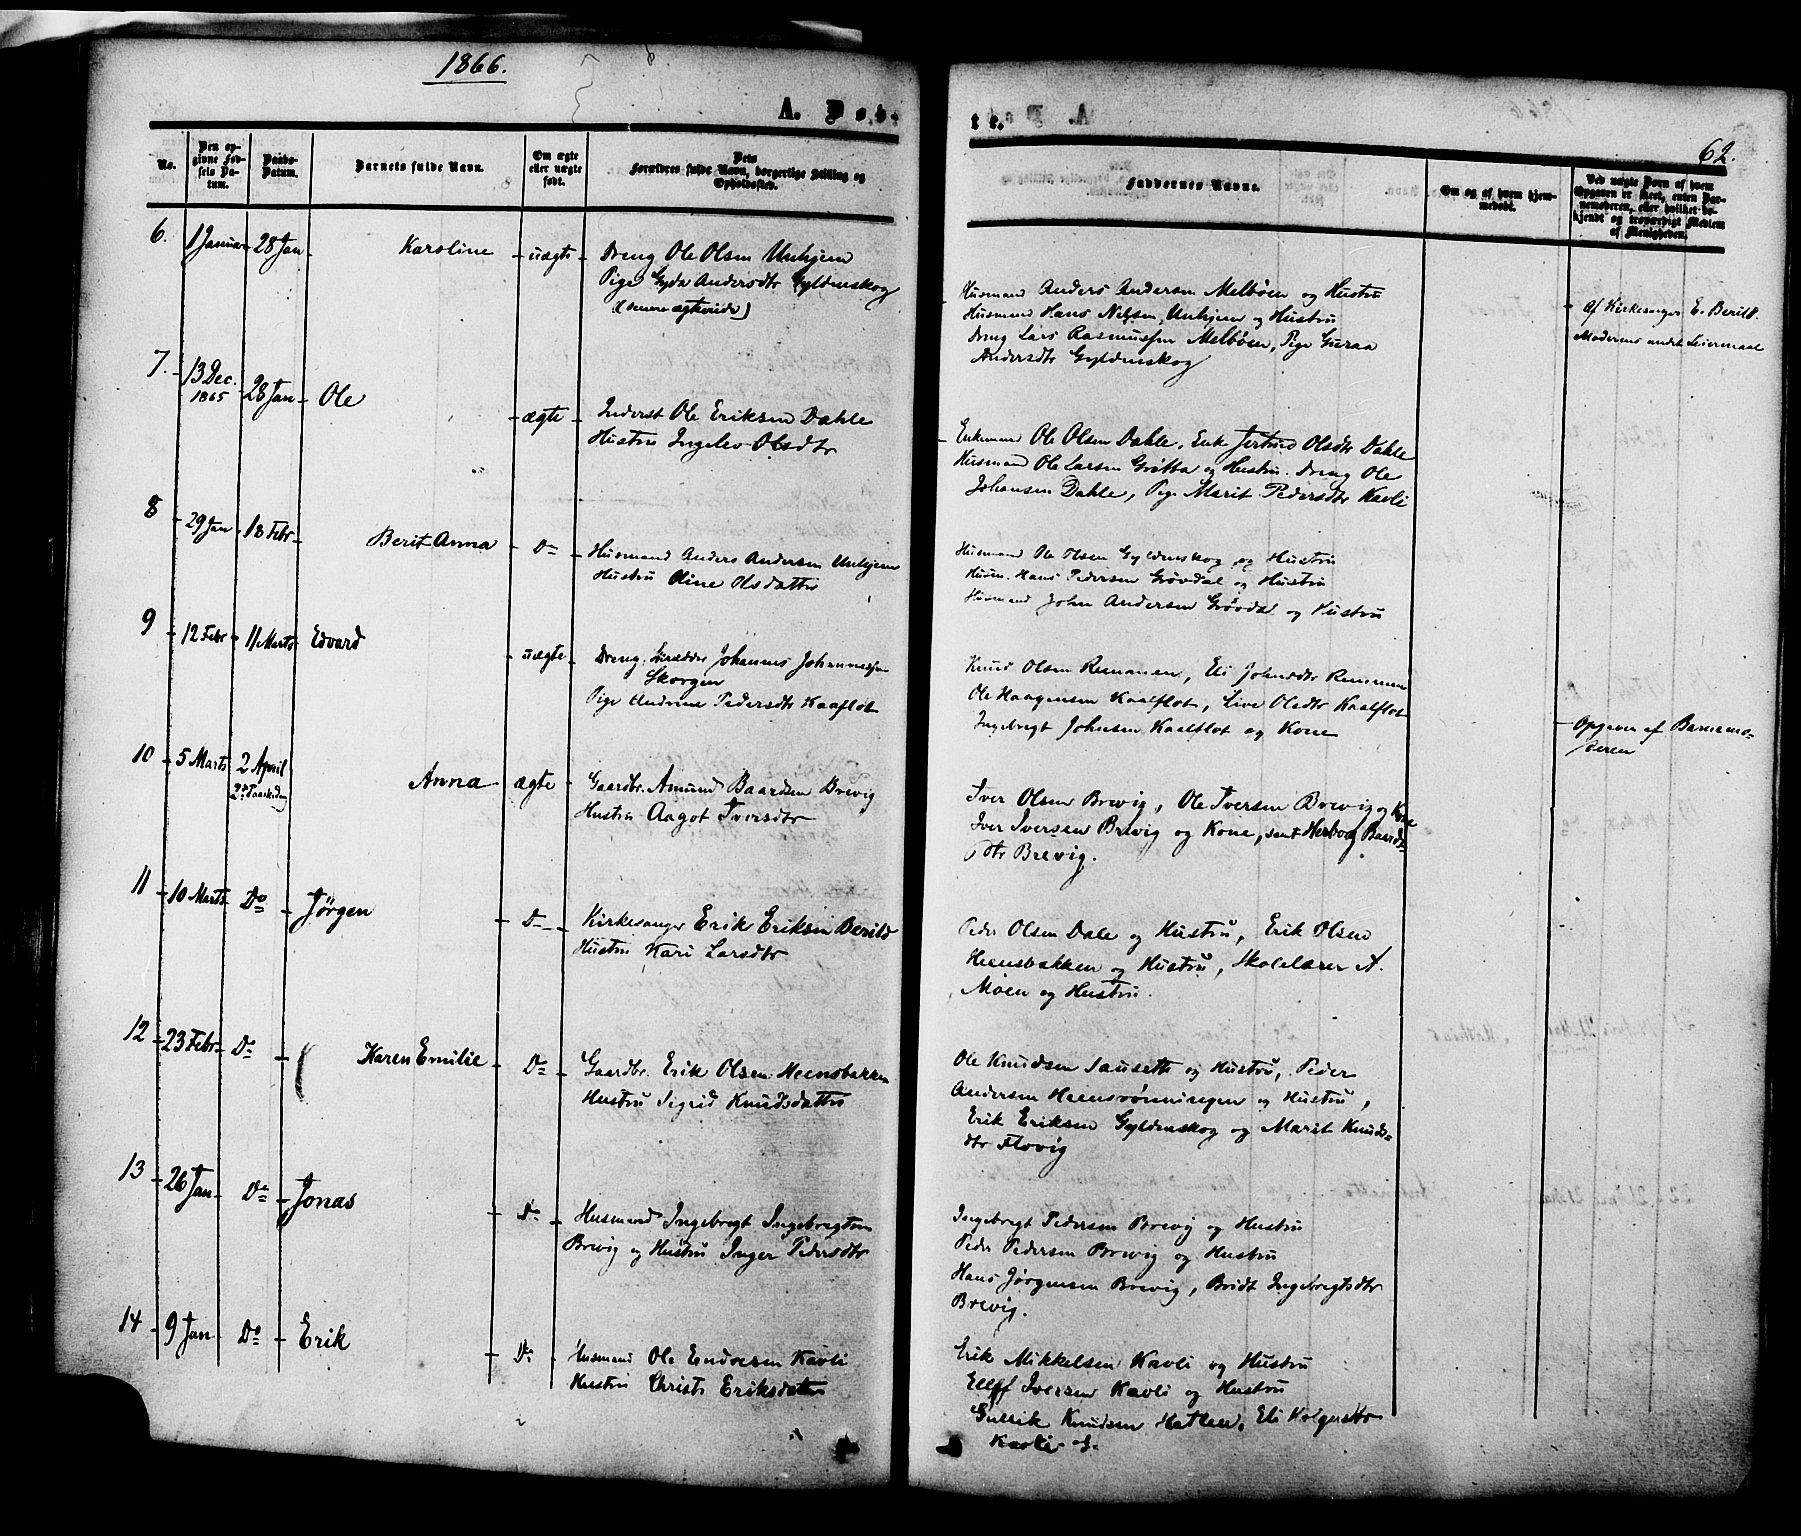 1866.
A. Døb-
te.
62.
No.
Den op-
givne Fød-
sels Da-
tum.
Daabs-
Datum.
Barnets fulde Navn.
Om ægte
eller uægte
født.
Dets
Forældres fulde Navn, borgerlige Stilling og
Opholdssted.
Faddernes Navne.
Om og af hvem hjem-
medøbt.
Ved uægte Børn af hvem
Opgaven er skeet, enten Bar-
nemoderen, eller hvilket be-
kjendt og troværdigt Medlem
af Menigheden.
6. 1 Januar 28 Jan Karoline uægte Dreng Ole Olsen Unhjem
Pige Gyda Andersdtr Gyldenskog
(senere ægteviede)
Husmand Anders Andersen Melbøen og Hustru
Husmand Hans Nilsen Unhjem og Hustru
Dreng Lars Rasmussen Melbøen, Pige Guraa
Andersdtr Gyldenskog
af Kirkesanger E. Berild.
Moderens andet Leiermaal
7. 13 Dec. 1865 28 Jan Ole ægte Inderst Ole Eriksen Dahle
Hustru Ingelev Olsdtr
Enkemand Ole Olsen Dahle, Enke Jertrud Olsdtr Dahle
Husmand Ole Larsen Grøtta og Hustru. Dreng Ole
Johansen Dahle, Pige Marit Pedersdtr Kavli
8 29 Jan 18 Febr Berit Anna Do Husmand Anders Andersen Unhjem
Hustru Oline Olsdatter
Husmand Ole Olsen Gyldenskog og Hustru
Husm. Hans Pedersen Grøvdal og Hustru
Husmand John Andersen Grøvdal og Hustru
9 12 Febr 11 Marts Edvard uægte Dreng, Skrædder Johannes Johannessen
Skorgen
Pige Andrine Pedersdtr Kaaflot
Knud Olsen Remmen, Eli Johnsdtr Remmen
Ole Haagensen Kaalflot, Live Olsdtr Kaalflot
Ingebregt Johnsen Kaalflot og Kone
Opgiven af Barnemo-
deren
10 5 Marts 2 April
2d Paaskedag Anna ægte Gaardbr. Amund Baardsen Brevig
Hustru Aagot Iversdtr
Iver Olsen Brevig, Ole Iversen Brevig og Kone
Iver Iversen Brevig og Kone, samt Herborg Baards-
dtr Brevig.
11 10 Marts Do Jørgen Do Kirkesanger Erik Eriksen Berild
Hustru Kari Larsdtr
Peder Olsen Dale og Hustru, Erik Olsen
Heensbakken og Hustru, Skolelærer A.
Moen og Hustru.
12 23 Febr Do Karen Emilie Do Gaardbr. Erik Olsen Heensbakken
Hustru Sigrid Knudsdatter
Ole Knudsen Sausett og Hustru, Peder
Andersen Heensrønningen og Hustru,
Erik Eriksen Gyldenskog og Marit Knuds-
dtr Flovig
13 26 Jan Do Jonas Do Husmand Ingebregt Ingebregtsen
Brevig og Hustru Inger Pedersdtr
Ingebregt Pedersen Brevig og Hustru
Peder Pedersen Brevig og Hustru
Hans Jørgensen Brevig, Bridt Ingebregtsdtr
Brevig.
14 9 Jan Do Erik Do Husmand Ole Endresen Kavli
Hustru Christi Eriksdatter
Erik Mikkelsen Kavli og Hustru
Elling Iversen Kavli og Hustru
Gullik Knudsen Hatlen, Eli Holgersdtr
Kavli